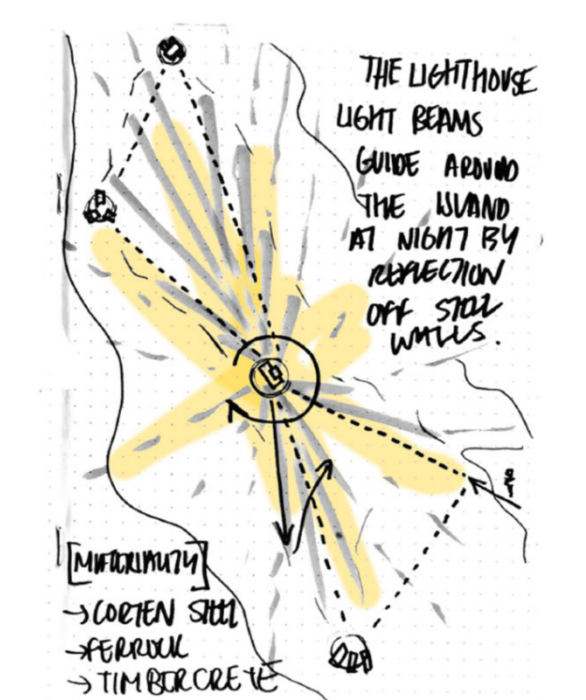 THE LIGHTHOUSE
LIGHT BEAMS
GUIDE AROUND
THE ISLAND
AT NIGHT BY
REFLECTION
OFF STEEL
WALLS.
[MATERIALITY]
→ CORTEN STEEL
→ FERROCK
→ TIMBERCRETE